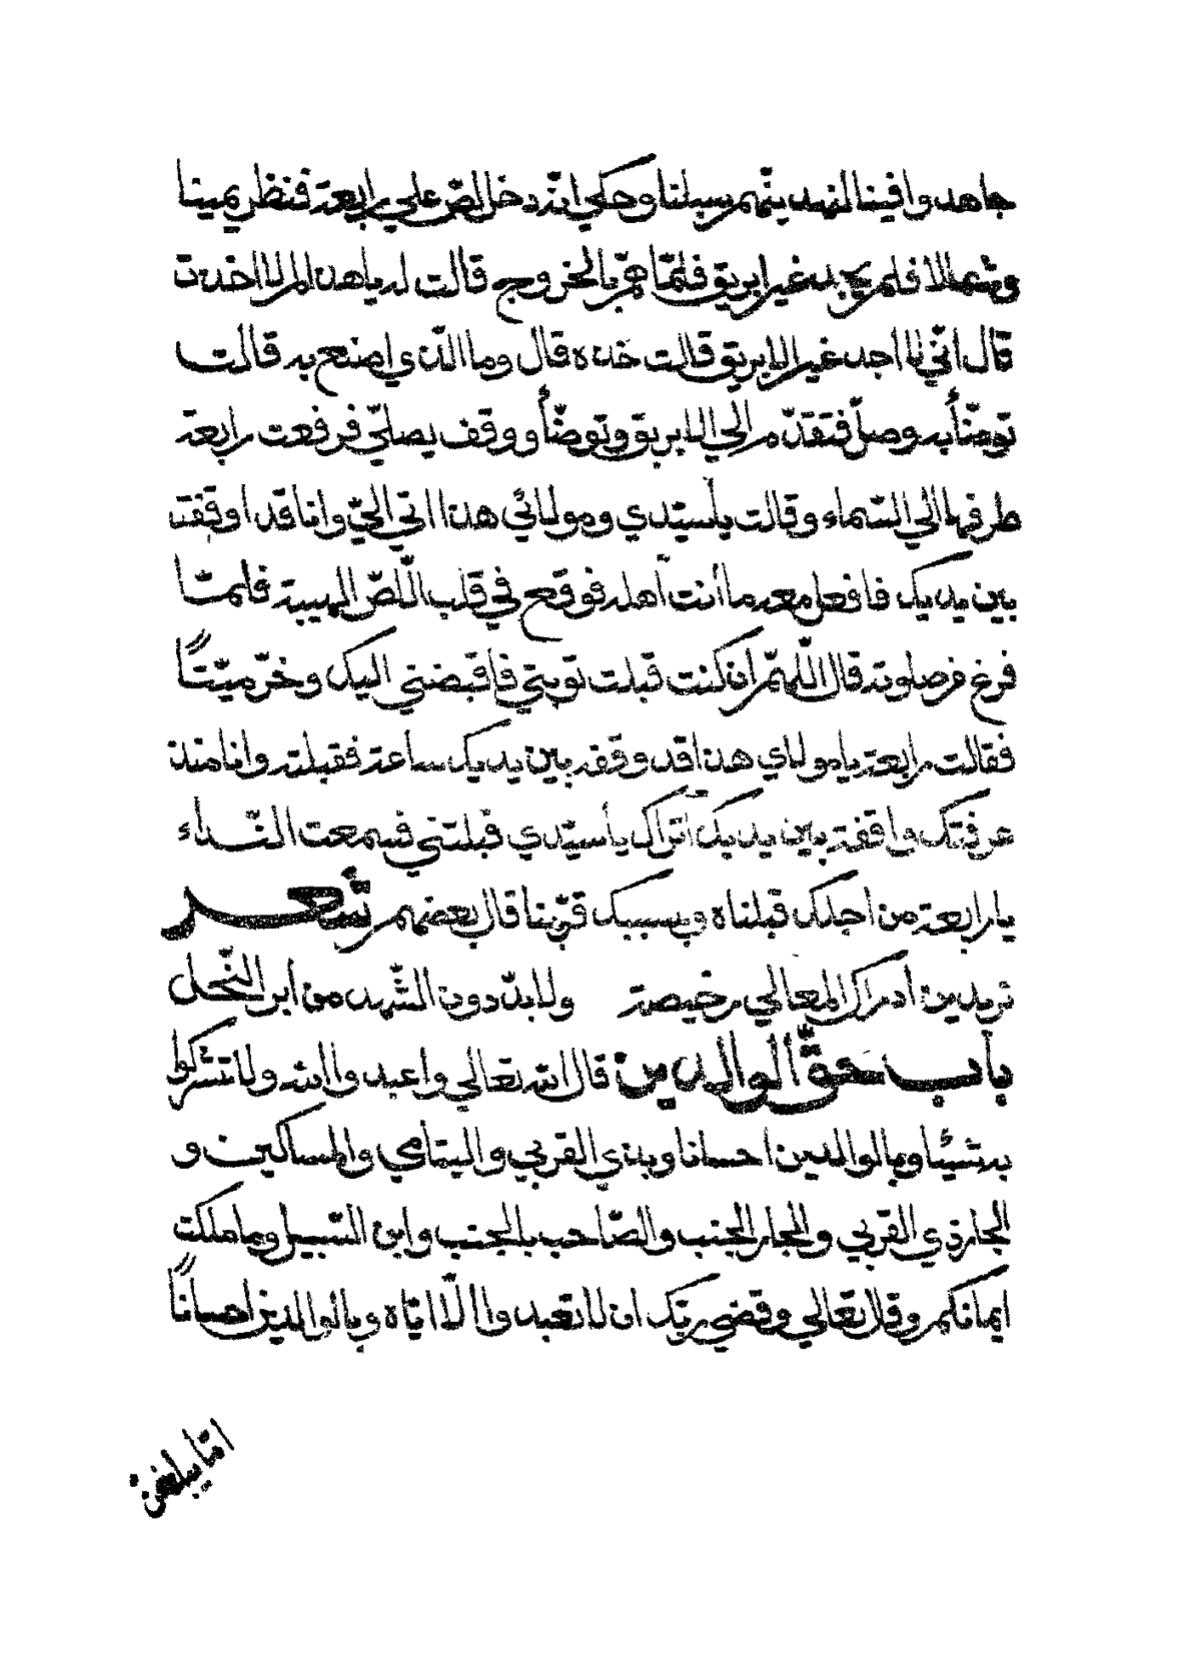 جاهدوا فينا لنهدينّهم سبلنا وحكي انّه دخل لصّ علي رابعة فنظر يمينا
وشمالا فلم يجد غير ابريق فلمّا همّ بالخروج قالت له يا هذا لم لا اخذت
قال انّي لا اجد غير الابريق قالت خذه قال وما الّذي اصنع به قالت
توضّأ به وصلّ فتقدّم الي الابريق وتوضّأ ووقف يصلّي فرفعت رابعة
طرفها الي السّماء وقالت يا سيّدي ومولائي هذا اتي اليّ وانا قد اوقفته
بين يديك فافعل معه ما أنت أهله فوقع في قلب اللّصّ الهيبة فلمّا
فرغ من صلوته قال اللّهمّ أن كنت قبلت توبتي فاقبضني اليك وخرّ ميّتًا
فقالت رابعة يا مولاي هذا قد وقف بين يديك ساعة فقبلته وانا منذ
عرفتك واقفة بين يديك أتراك يا سيّدي قبلتني فسمعت النّداء
يا رابعة من اجلك قبلناه وبسببك قرّبنا قال بعضهم شعر
تريدين أدراك المعالي رخيصة ولا بدّ دون الشّهد من ابر النّحل
باب حقّ الوالدين قال الله تعالي واعبدوا الله ولا تشركوا
به شيئا وبالوالدين احسانا وبذي القربي واليتامي والمساكين و
الجار ذي القربي والجار الجنب والصّاحب بالجنب وابن السّبيل وما ملكت
ايمانكم وقال تعالي وقضي ربّك ان لا تعبدوا الّا ايّاه وبالوالدين احسانًا
امّا يبلغنّ